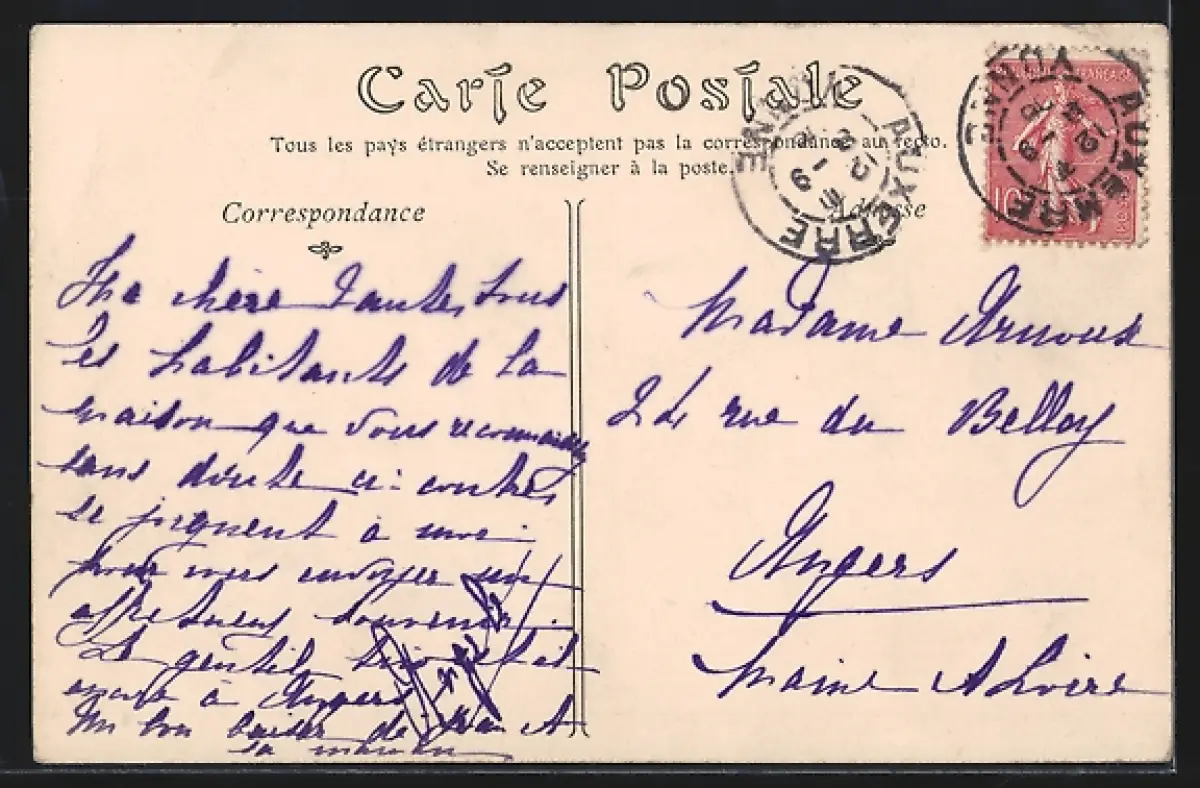 Carte Postale
Tous les pays étrangers n'acceptent pas la correspondance au recto.
Se renseigner à la poste.
Correspondance
Adresse
YONNE AUXERRE
YONNE AUXERRE
FRANÇAISE
10
Ma chère Tante, tous
les habitants de la
maison que vous reconnaissez
sans doute ci-contre,
se joignent à moi
pour vous envoyer un
affectueux souvenir.
Le gentil est
encore à Angers
Un bon baiser de Jean &
sa maman
Madame Arnoux
24 rue du Bellay
Angers
Maine & Loire